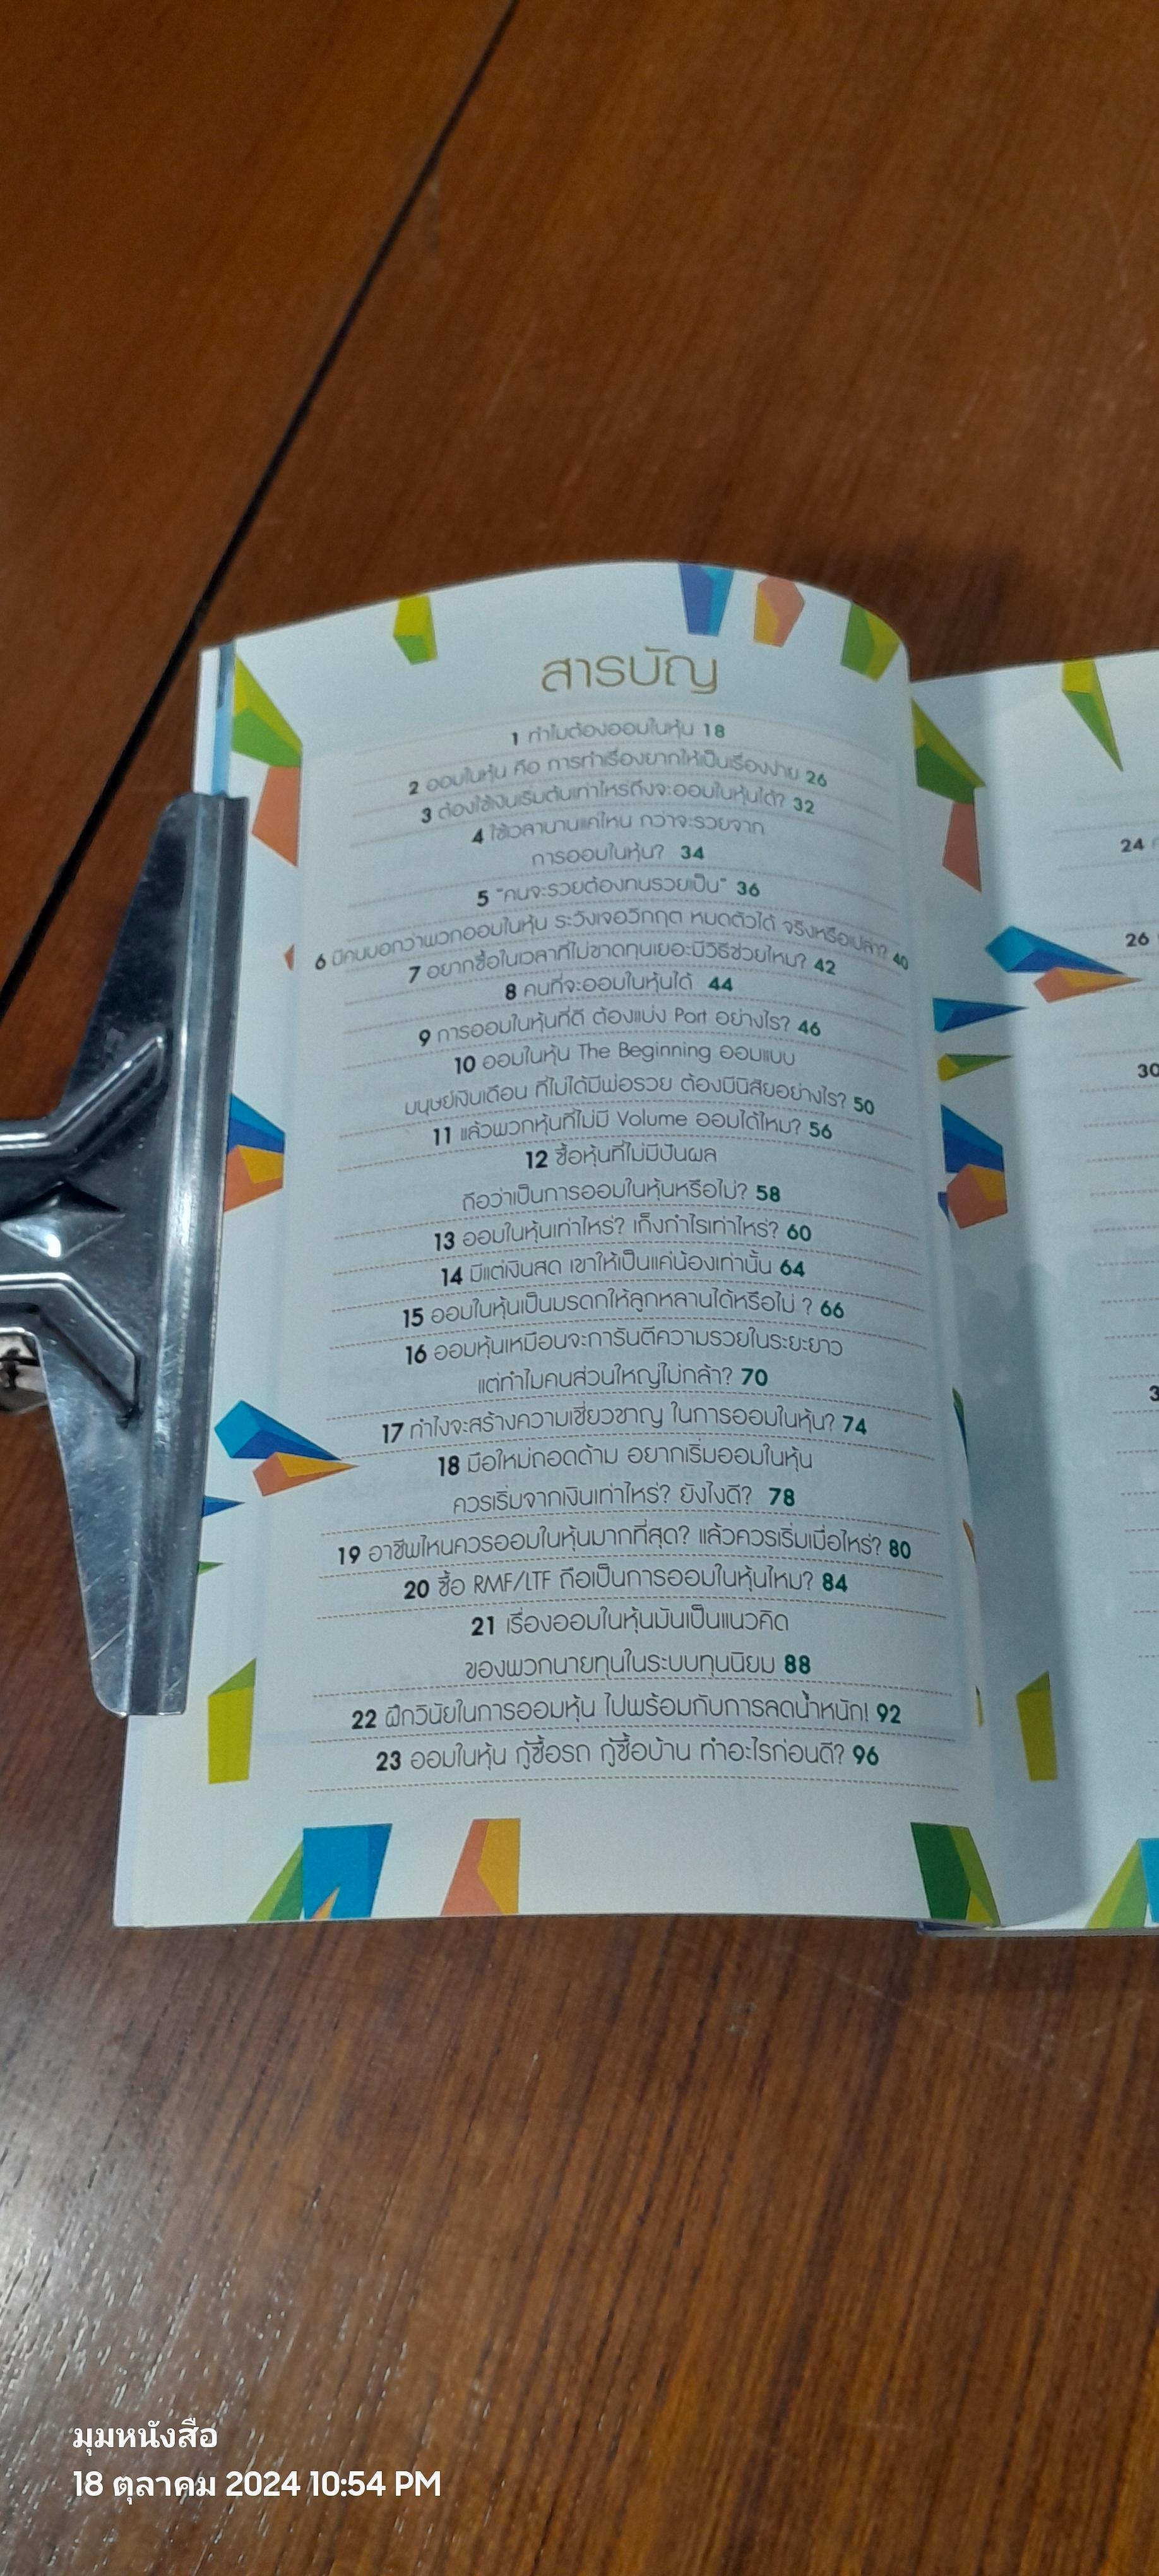 สารบัญ
1 ทำไมต้องออมในหุ้น 18
2 ออมในหุ้น คือ การทำเรื่องยากให้เป็นเรื่องง่าย 26
3 ต้องใช้เงินเริ่มต้นเท่าไหร่ถึงจะออมในหุ้นได้? 32
4 ใช้เวลานานแค่ไหน กว่าจะรวยจาก
การออมในหุ้น? 34
5 "คนจะรวยต้องทนรวยเป็น" 36
6 มีคนบอกว่าพวกออมในหุ้น ระวังเจอวิกฤต หมดตัวได้ จริงหรือเปล่า? 40
7 อยากซื้อในเวลาที่ไม่ขาดทุนเยอะมีวิธีช่วยไหม? 42
8 คนที่จะออมในหุ้นได้ 44
9 การออมในหุ้นที่ดี ต้องแบ่ง Port อย่างไร? 46
10 ออมในหุ้น The Beginning ออมแบบ
มนุษย์เงินเดือน ที่ไม่ได้มีพ่อรวย ต้องมีนิสัยอย่างไร? 50
11 แล้วพวกหุ้นที่ไม่มี Volume ออมได้ไหม? 56
12 ซื้อหุ้นที่ไม่มีปันผล
ถือว่าเป็นการออมในหุ้นหรือไม่? 58
13 ออมในหุ้นเท่าไหร่? เก็งกำไรเท่าไหร่? 60
14 มีแต่เงินสด เขาให้เป็นแค่น้องเท่านั้น 64
15 ออมในหุ้นเป็นมรดกให้ลูกหลานได้หรือไม่ ? 66
16 ออมหุ้นเหมือนจะการันตีความรวยในระยะยาว
แต่ทำไมคนส่วนใหญ่ไม่กล้า? 70
17 ทำไงจะสร้างความเชี่ยวชาญ ในการออมในหุ้น? 74
18 มือใหม่ถอดด้าม อยากเริ่มออมในหุ้น
ควรเริ่มจากเงินเท่าไหร่? ยังไงดี? 78
19 อาชีพไหนควรออมในหุ้นมากที่สุด? แล้วควรเริ่มเมื่อไหร่? 80
20 ซื้อ RMF/LTF ถือเป็นการออมในหุ้นไหม? 84
21 เรื่องออมในหุ้นมันเป็นแนวคิด
ของพวกนายทุนในระบบทุนนิยม 88
22 ฝึกวินัยในการออมหุ้น ไปพร้อมกับการลดน้ำหนัก! 92
23 ออมในหุ้น กู้ซื้อรถ กู้ซื้อบ้าน ทำอะไรก่อนดี? 96
24
26
30
มุมหนังสือ
18 ตุลาคม 2024 10:54 PM